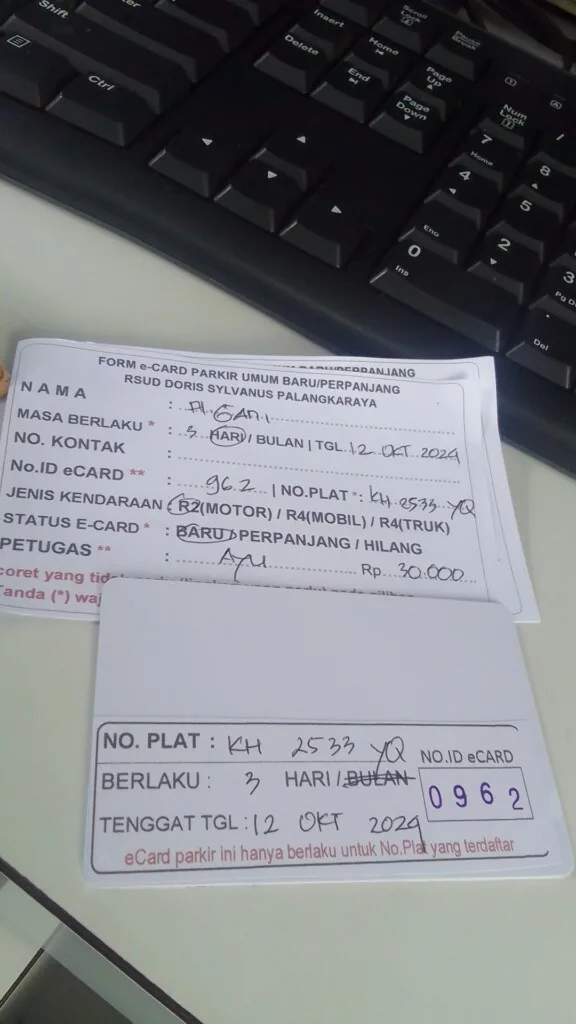 Shift
Ctrl
Insert
Scroll
Lock
Pause
Break
Delete
Home
Page
Up
End
Page
Down
Num
Lock
/
7
Home
8
4
5
Eno
2
3
0
Ins
Pg D
.
Del
FORM e-CARD PARKIR UMUM BARU/PERPANJANG
RSUD DORIS SYLVANUS PALANGKARAYA
NAMA :
MASA BERLAKU * : 3 HARI / BULAN | TGL. 12 OKT 2024
NO. KONTAK :
No.ID eCARD ** : 962 | NO.PLAT * : KH 2533 YQ
JENIS KENDARAAN : R2(MOTOR) / R4(MOBIL) / R4(TRUK)
STATUS E-CARD * : BARU / PERPANJANG / HILANG
PETUGAS ** : AYU Rp. 30.000
coret yang
anda (*) waj
NO. PLAT : KH 2533 YQ
NO.ID eCARD
BERLAKU : 3 HARI / BULAN
0962
TENGGAT TGL : 12 OKT 2024
eCard parkir ini hanya berlaku untuk No.Plat yang terdaftar